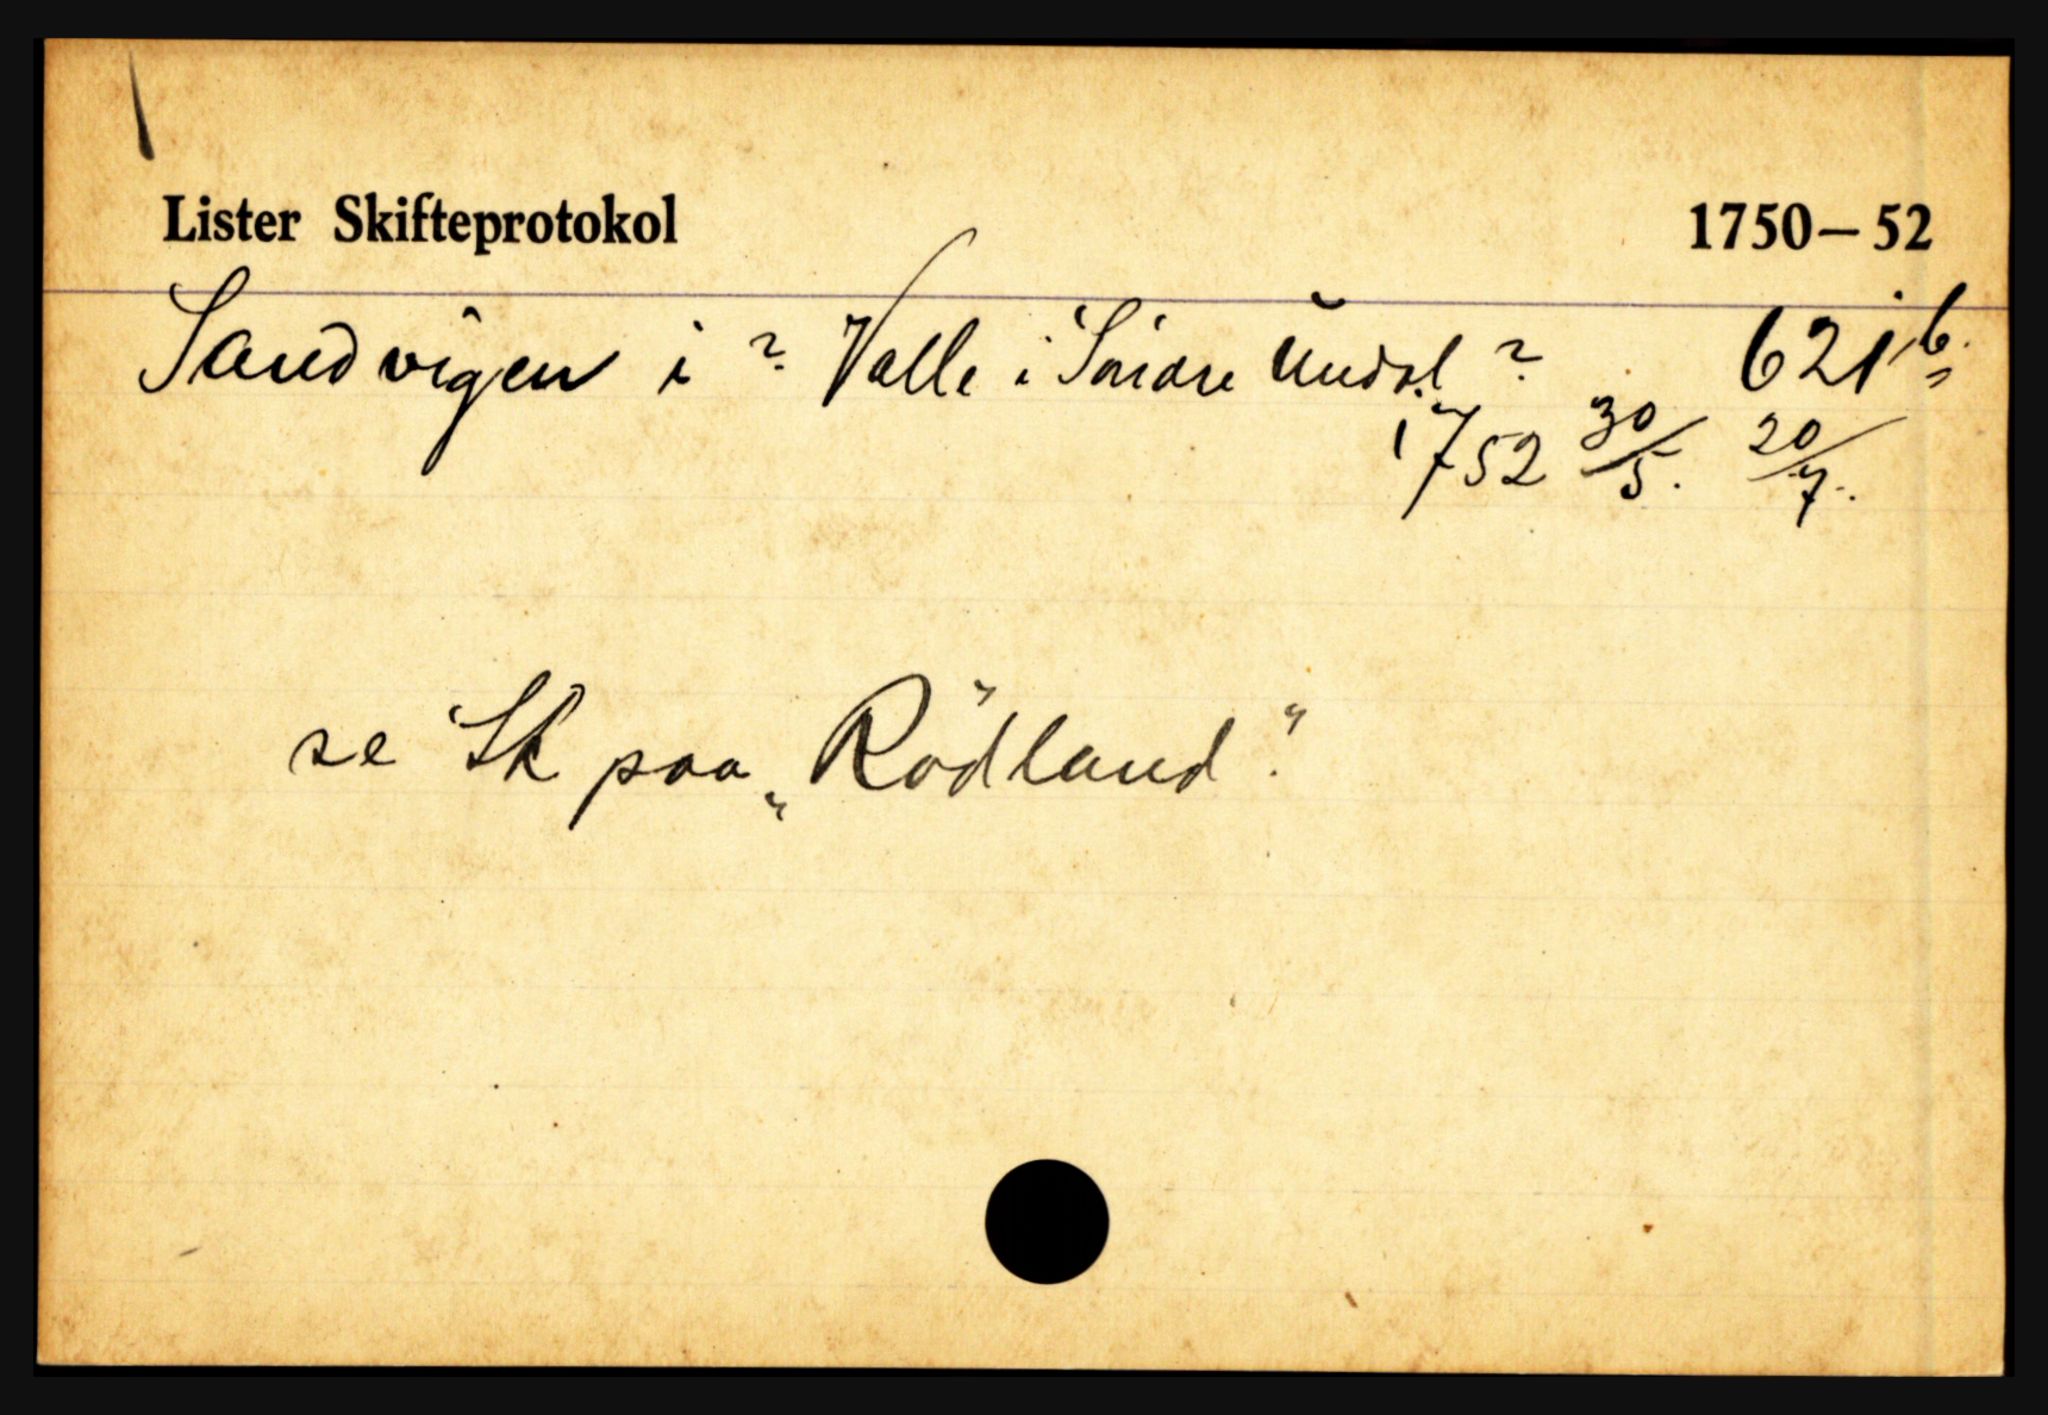 Lister Skifteprotokol 1750–52
Sandvigen i ? Valle i Söndre Undal ? 621 b.
1752 30/5. 20/7.
se Sk paa „Rödland".